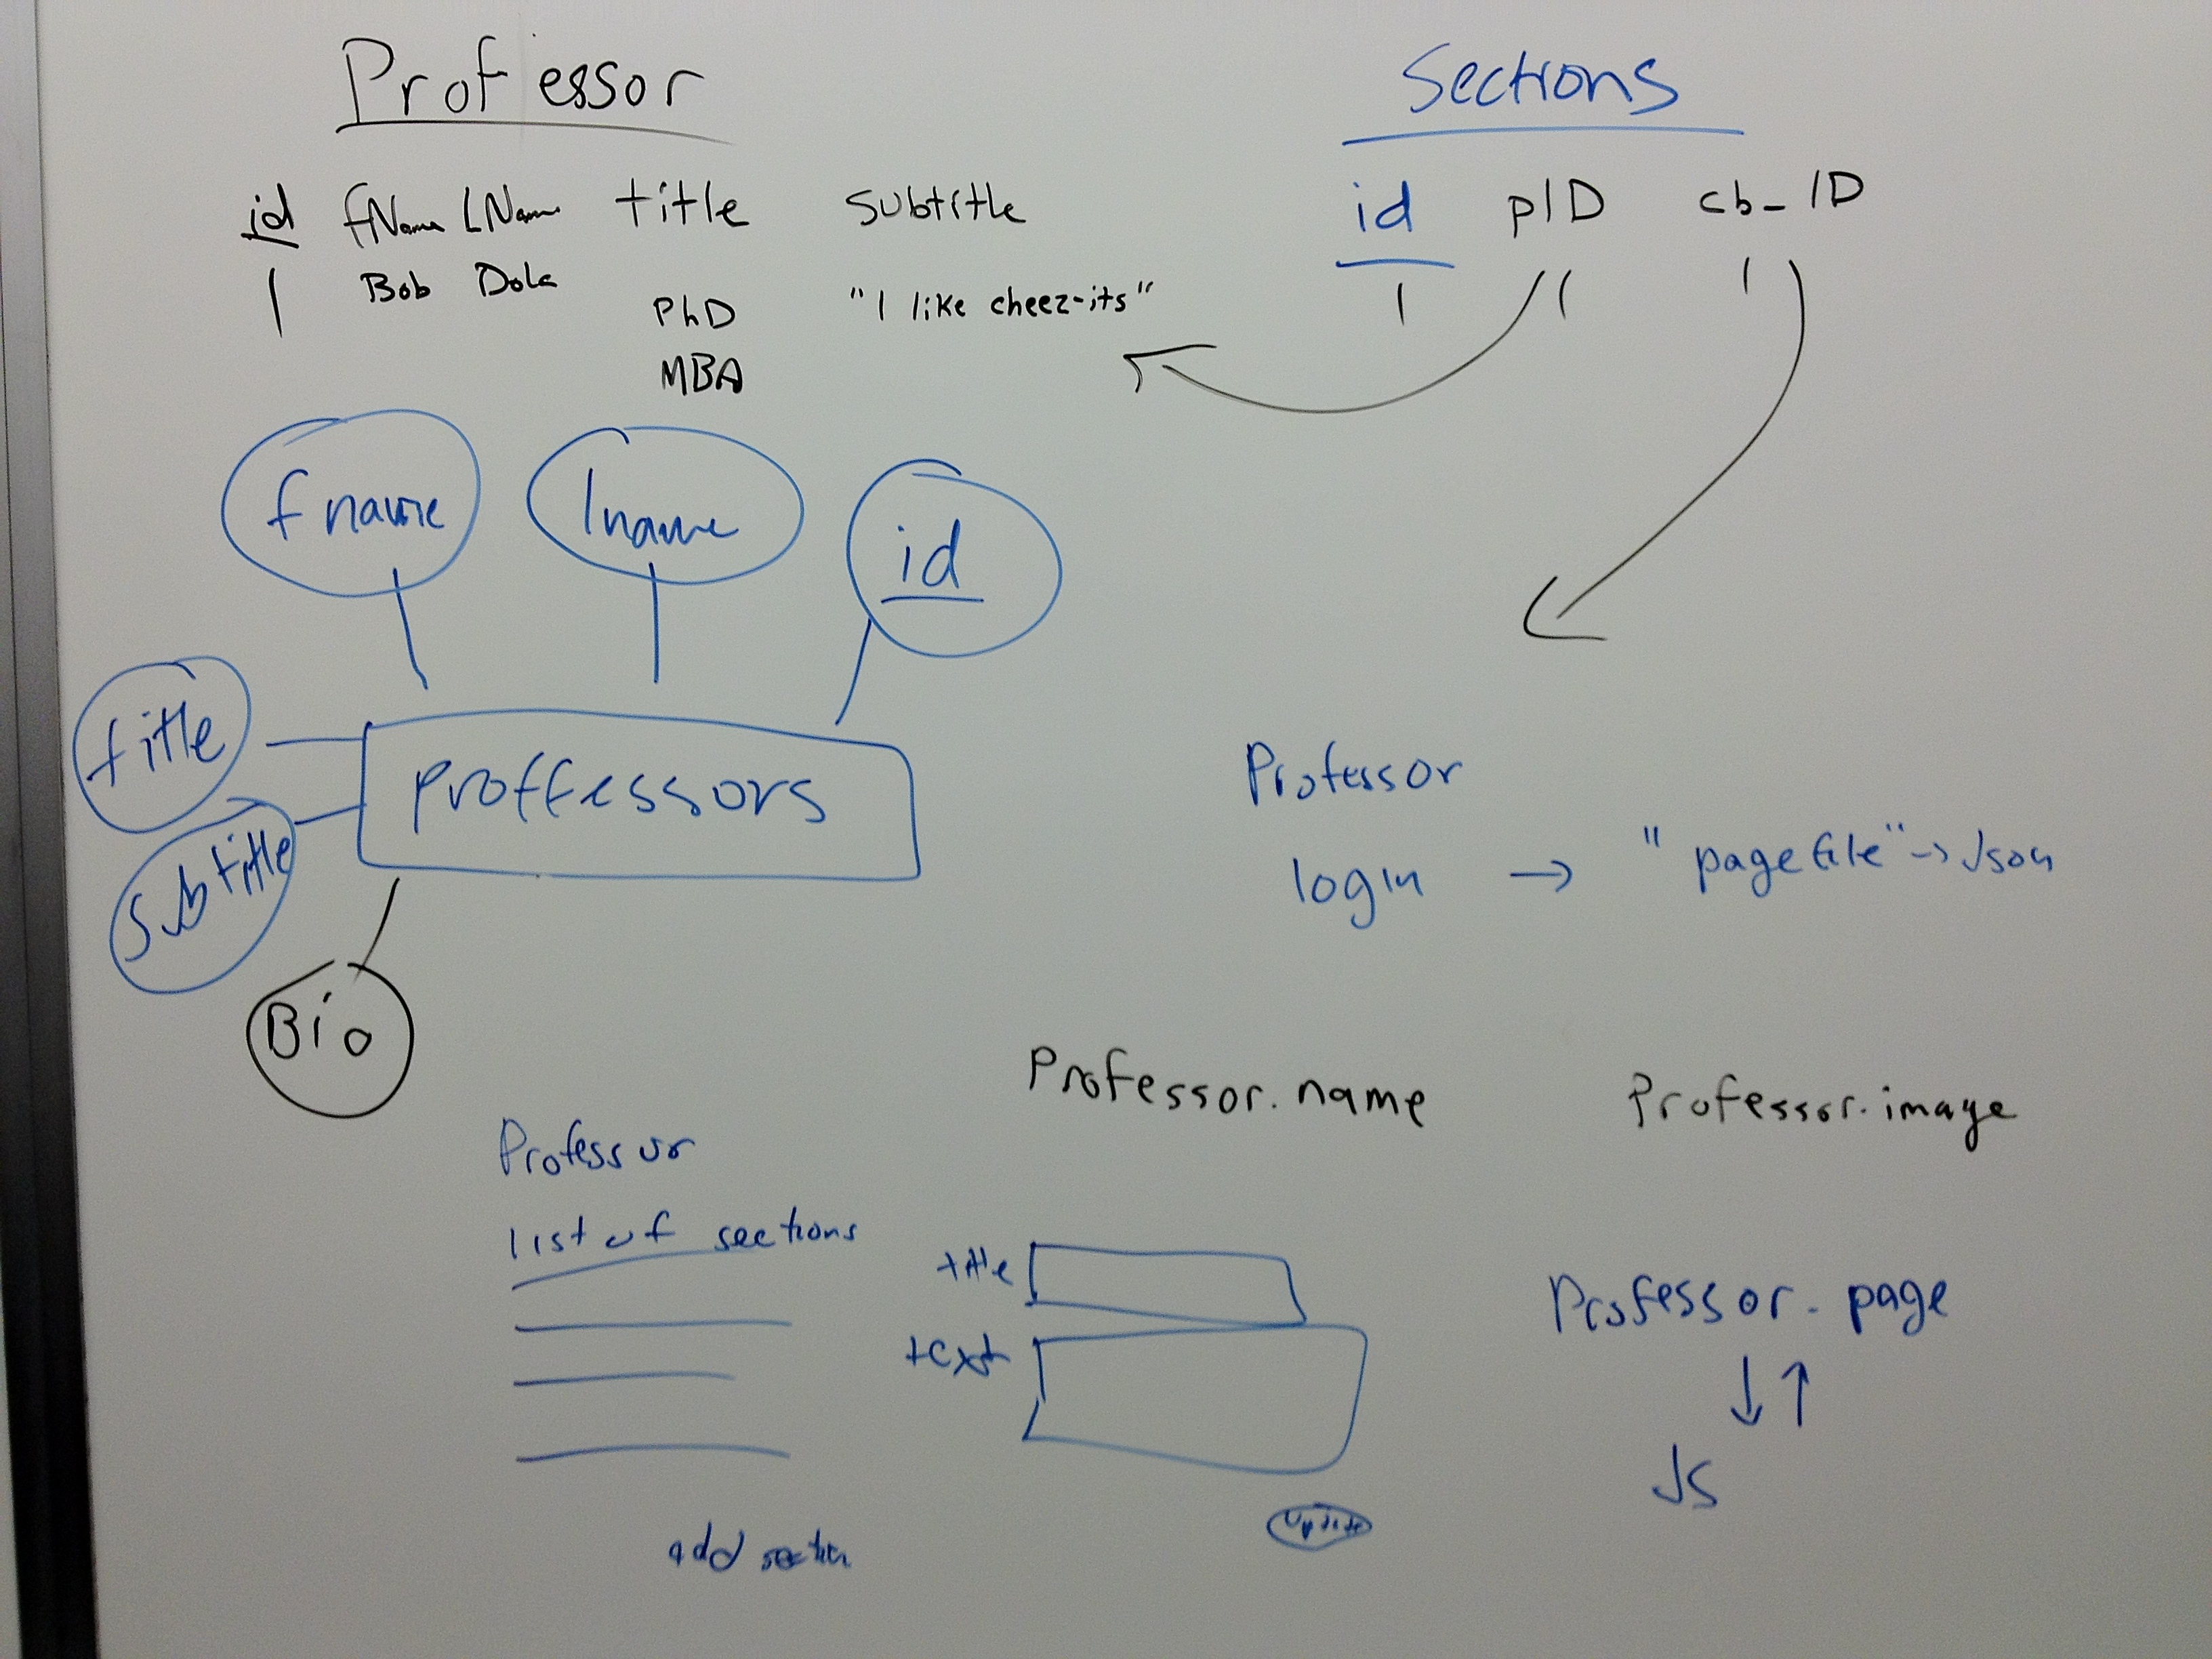 Professor
id fName LName title subtitle
1 Bob Dole PhD "I like cheez-its"
MBA
Sections
id pID cb_ID
1 1 1
fname
lname
id
title
subtitle
Proffessors
Bio
Professor
login → "pagefile" → Json
Professor.name
Professor.image
Professor
list of sections
add section
title
text
update
Professor.page
↓ ↑
JS